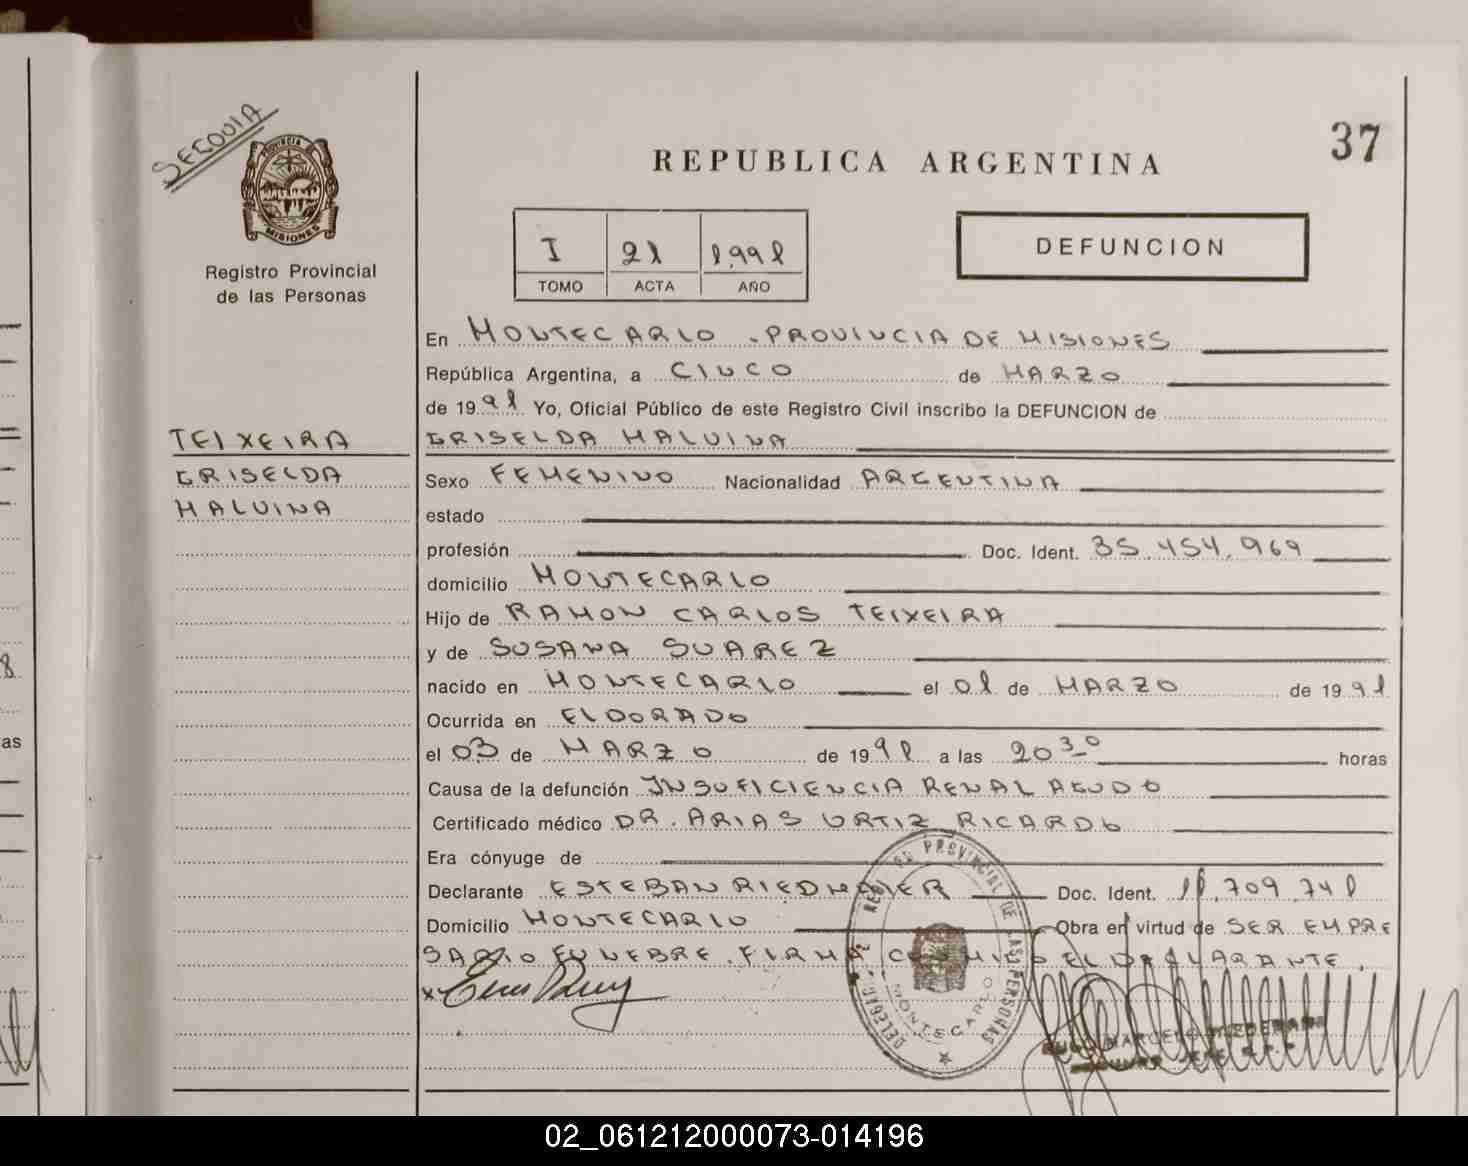 SEGOVIA
PROVINCIA DE
MISIONES
Registro Provincial
de las Personas
TEIXEIRA
GRISELDA
MALVINA
37
REPUBLICA ARGENTINA
I 21 1.991
TOMO ACTA AÑO
DEFUNCION
En MONTECARLO - PROVINCIA DE MISIONES
República Argentina, a CINCO de MARZO
de 1991 Yo, Oficial Público de este Registro Civil inscribo la DEFUNCION de
GRISELDA MALVINA
Sexo FEMENINO Nacionalidad ARGENTINA
estado
profesión Doc. Ident. 35.454.969
domicilio MONTECARLO
Hijo de RAMON CARLOS TEIXEIRA
y de SUSANA SUAREZ
nacido en MONTECARLO el 01 de MARZO de 1991
Ocurrida en ELDORADO
el 03 de MARZO de 1991 a las 20 30 horas
Causa de la defunción INSUFICIENCIA RENAL AGUDO
Certificado médico DR. ARIAS ORTIZ RICARDO
Era cónyuge de
Declarante ESTEBAN RIEDMAIER Doc. Ident. 11.709.741
Domicilio MONTECARLO Obra en virtud de SER EMPRE
SARIO FUNEBRE. FIRMA CONMIGO EL DECLARANTE.
x
PROVINCIAL DE LAS PERSONAS
MONTECARLO
8
as
02_061212000073-014196